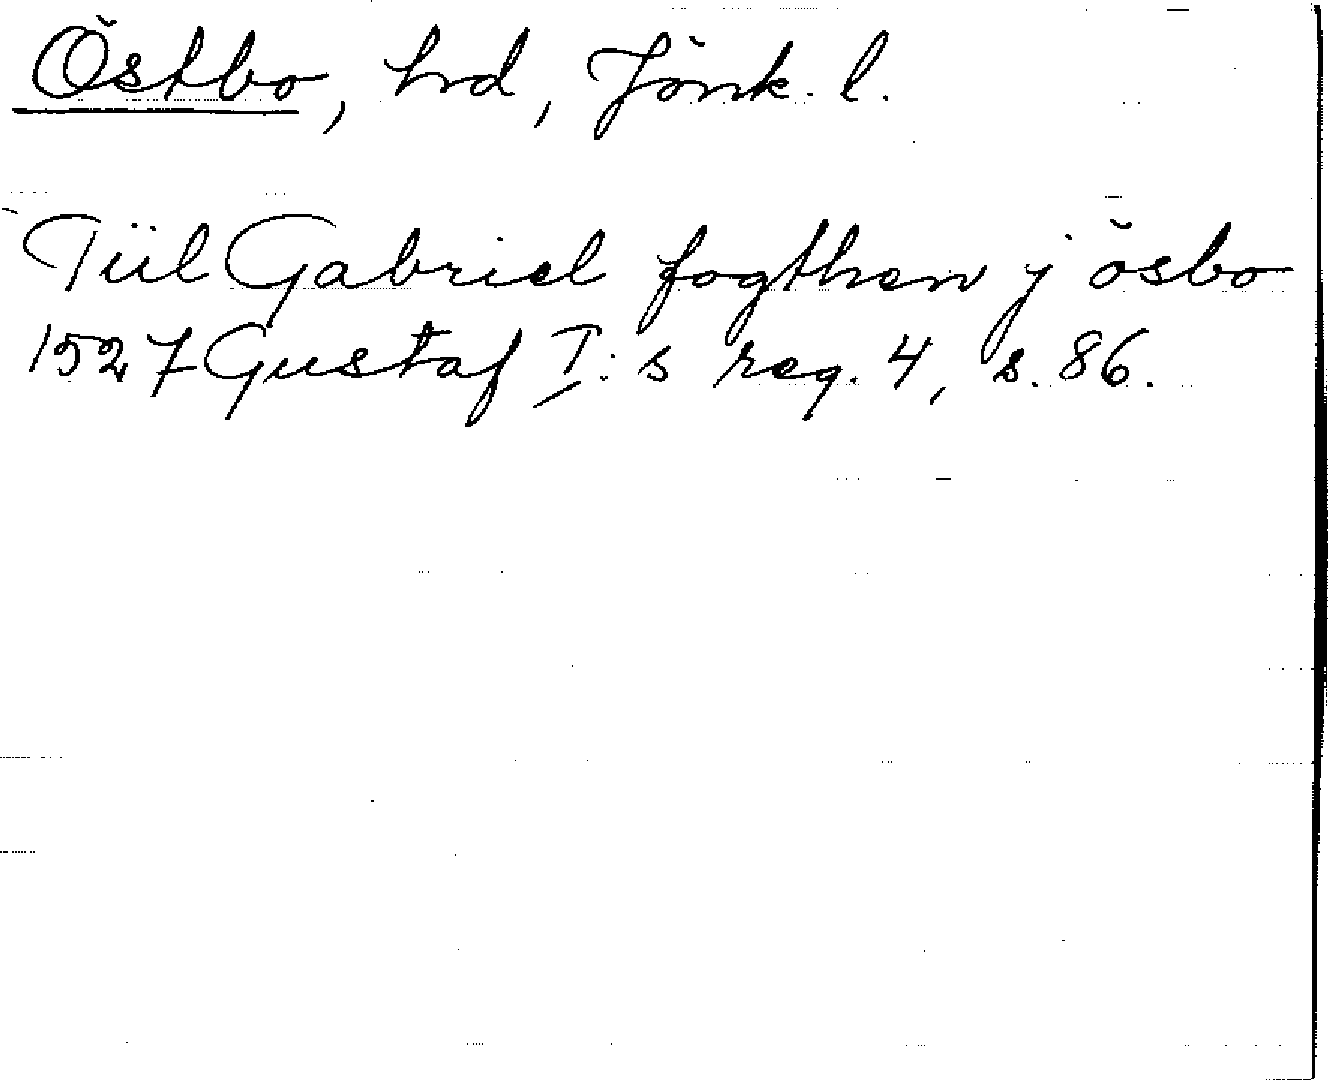 Östbo, hd, Jönk. l.
Tiil Gabriel fogthen j ösbo
1527 Gustaf I:s reg. 4, s. 86.